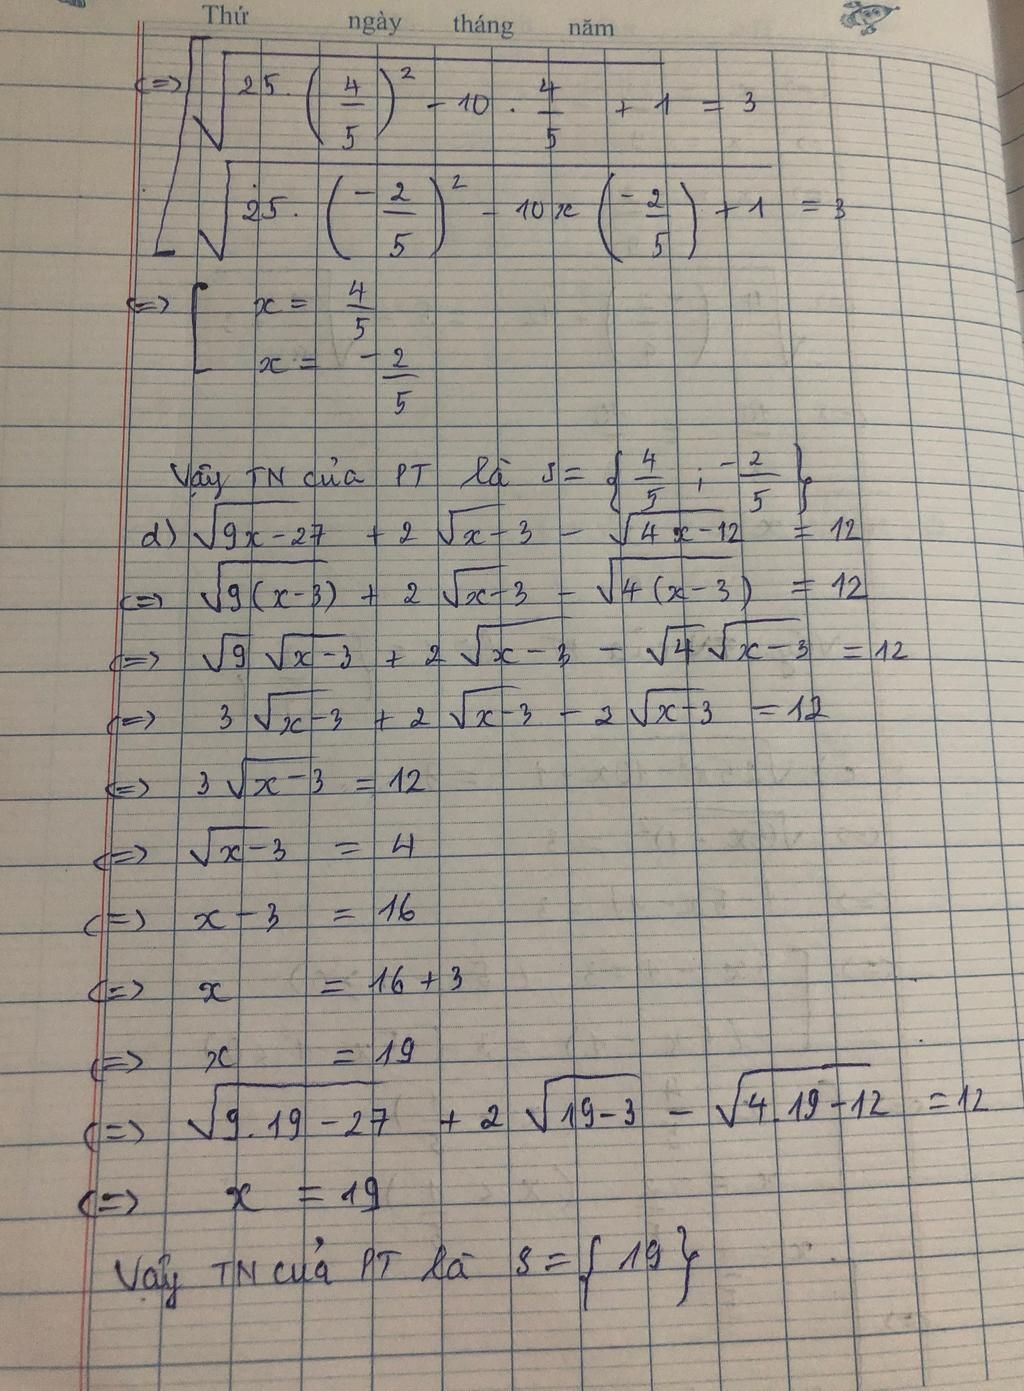 Thứ ngày tháng năm
(=) [ √25.(4/5)² - 10 . 4/5 + 1 = 3
√25.(-2/5)² - 10x(-2/5) + 1 = 3
(=) [ x = 4/5
x = -2/5
Vậy TN của PT là S = {4/5 ; -2/5}
d) √9x-27 + 2√x-3 - √4x-12 = 12
(=) √9(x-3) + 2√x-3 - √4(x-3) = 12
(=) √9 √x-3 + 2√x-3 - √4 √x-3 = 12
(=) 3√x-3 + 2√x-3 - 2√x-3 = 12
(=) 3√x-3 = 12
(=) √x-3 = 4
(=) x-3 = 16
(=) x = 16+3
(=) x = 19
(=) √9.19-27 + 2√19-3 - √4.19-12 = 12
(=) x = 19
Vậy TN của PT là S = {19}